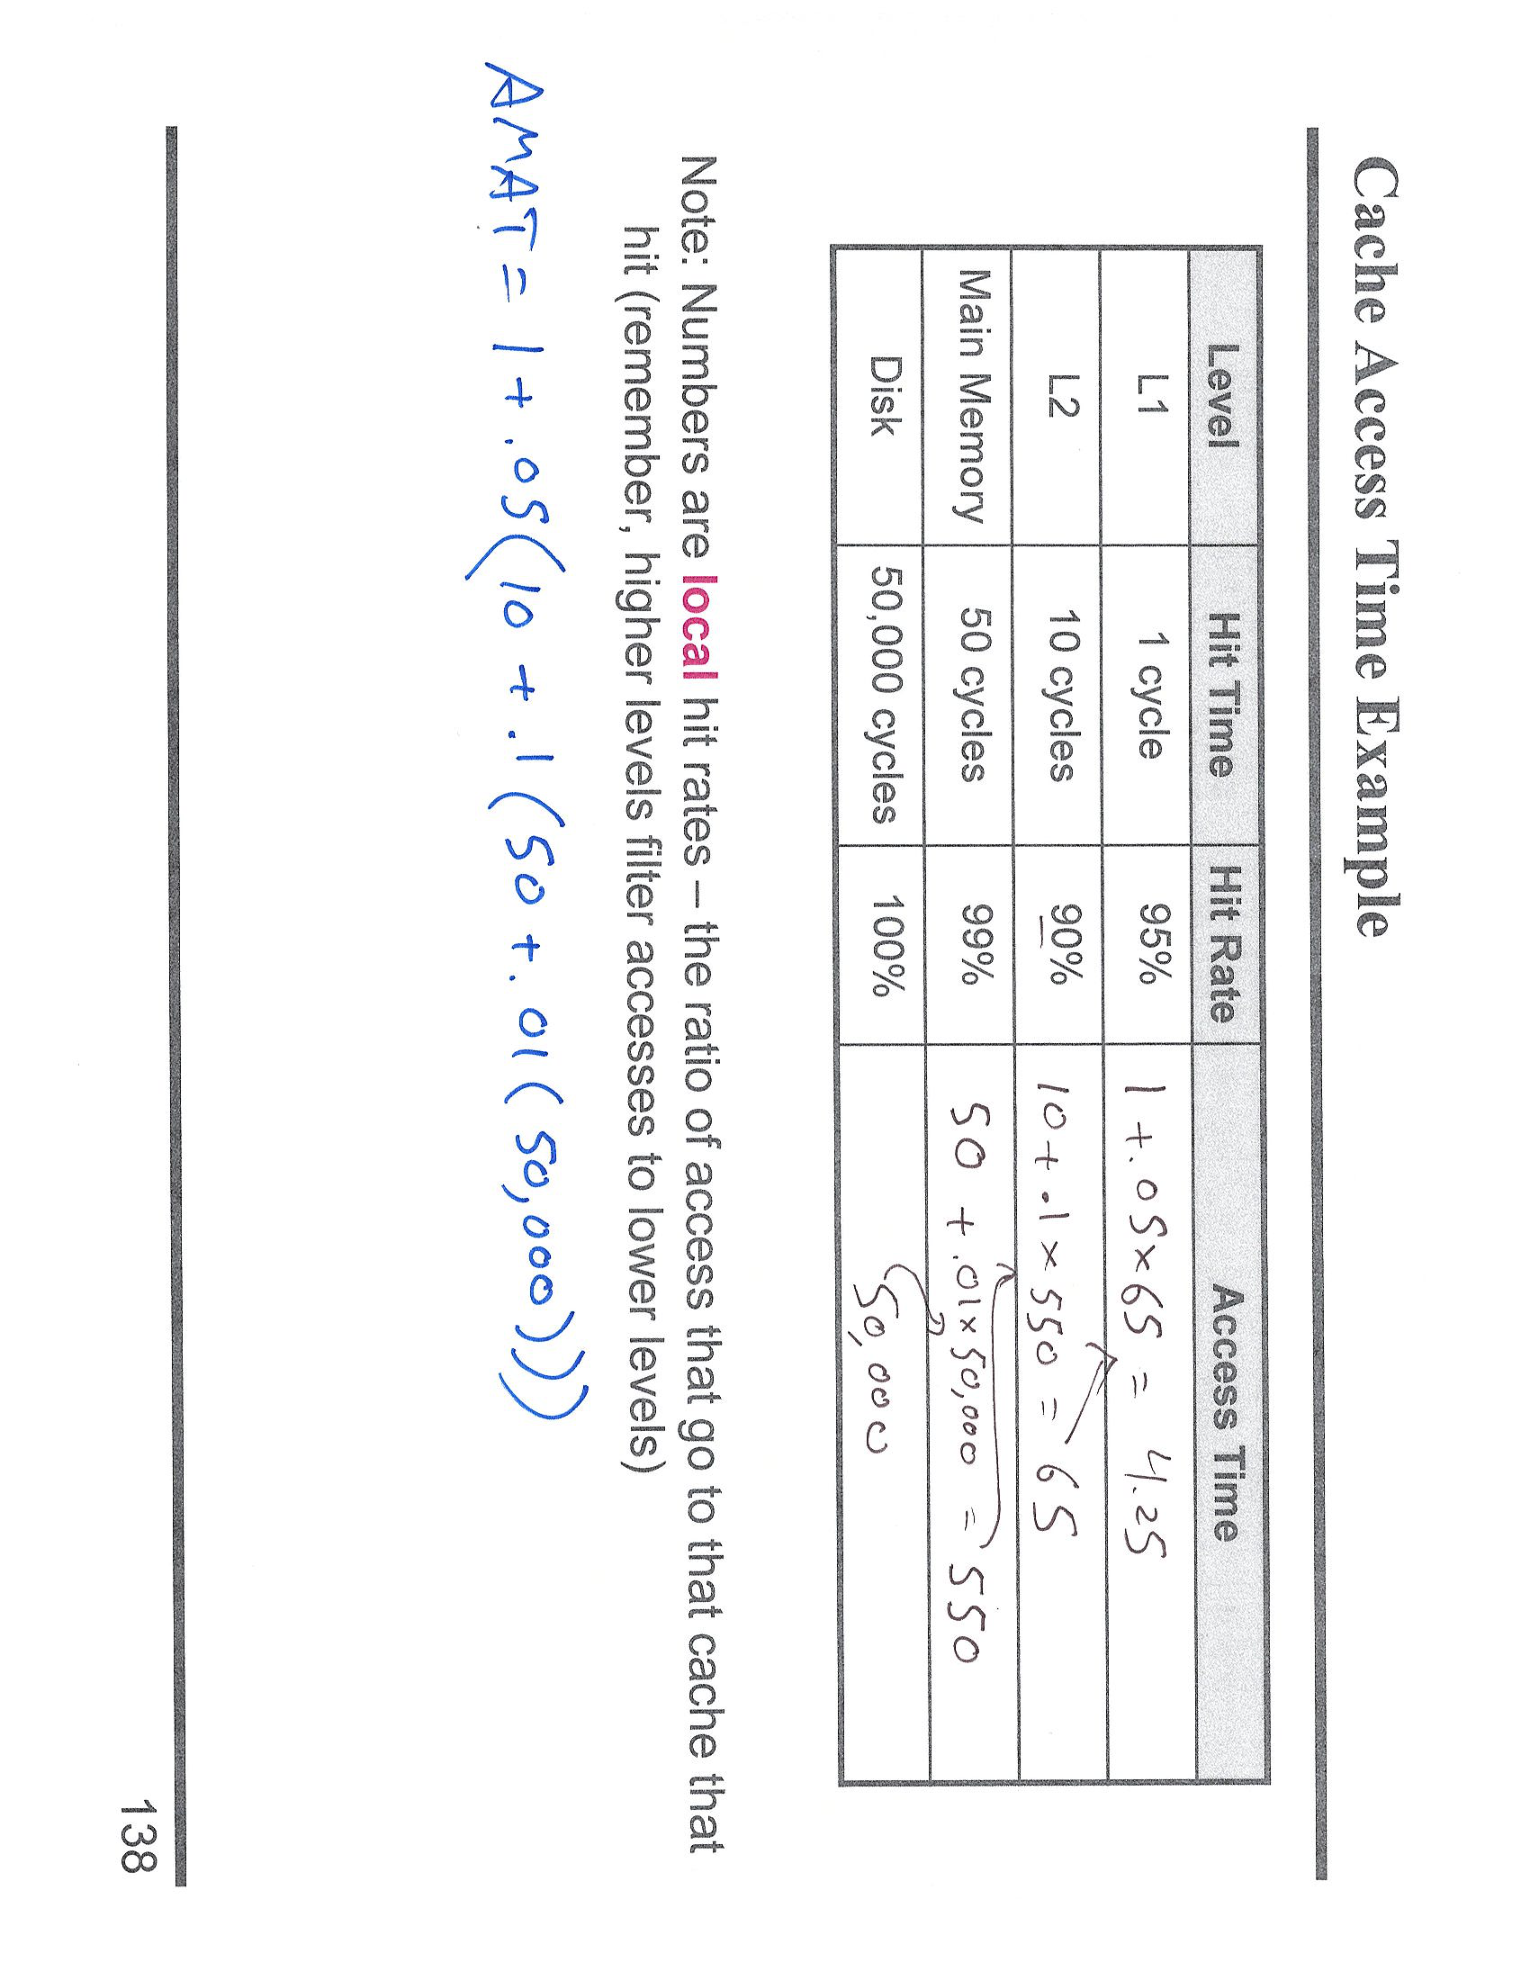 Cache Access Time Example
Level Hit Time Hit Rate Access Time
L1 1 cycle 95% 1 + .05 × 65 = 4.25
L2 10 cycles 90% 10 + .1 × 550 = 65
Main Memory 50 cycles 99% 50 + .01 × 50,000 = 550
Disk 50,000 cycles 100% 50,000
Note: Numbers are local hit rates – the ratio of access that go to that cache that
hit (remember, higher levels filter accesses to lower levels)
AMAT = 1 + .05(10 + .1(50 + .01(50,000)))
138